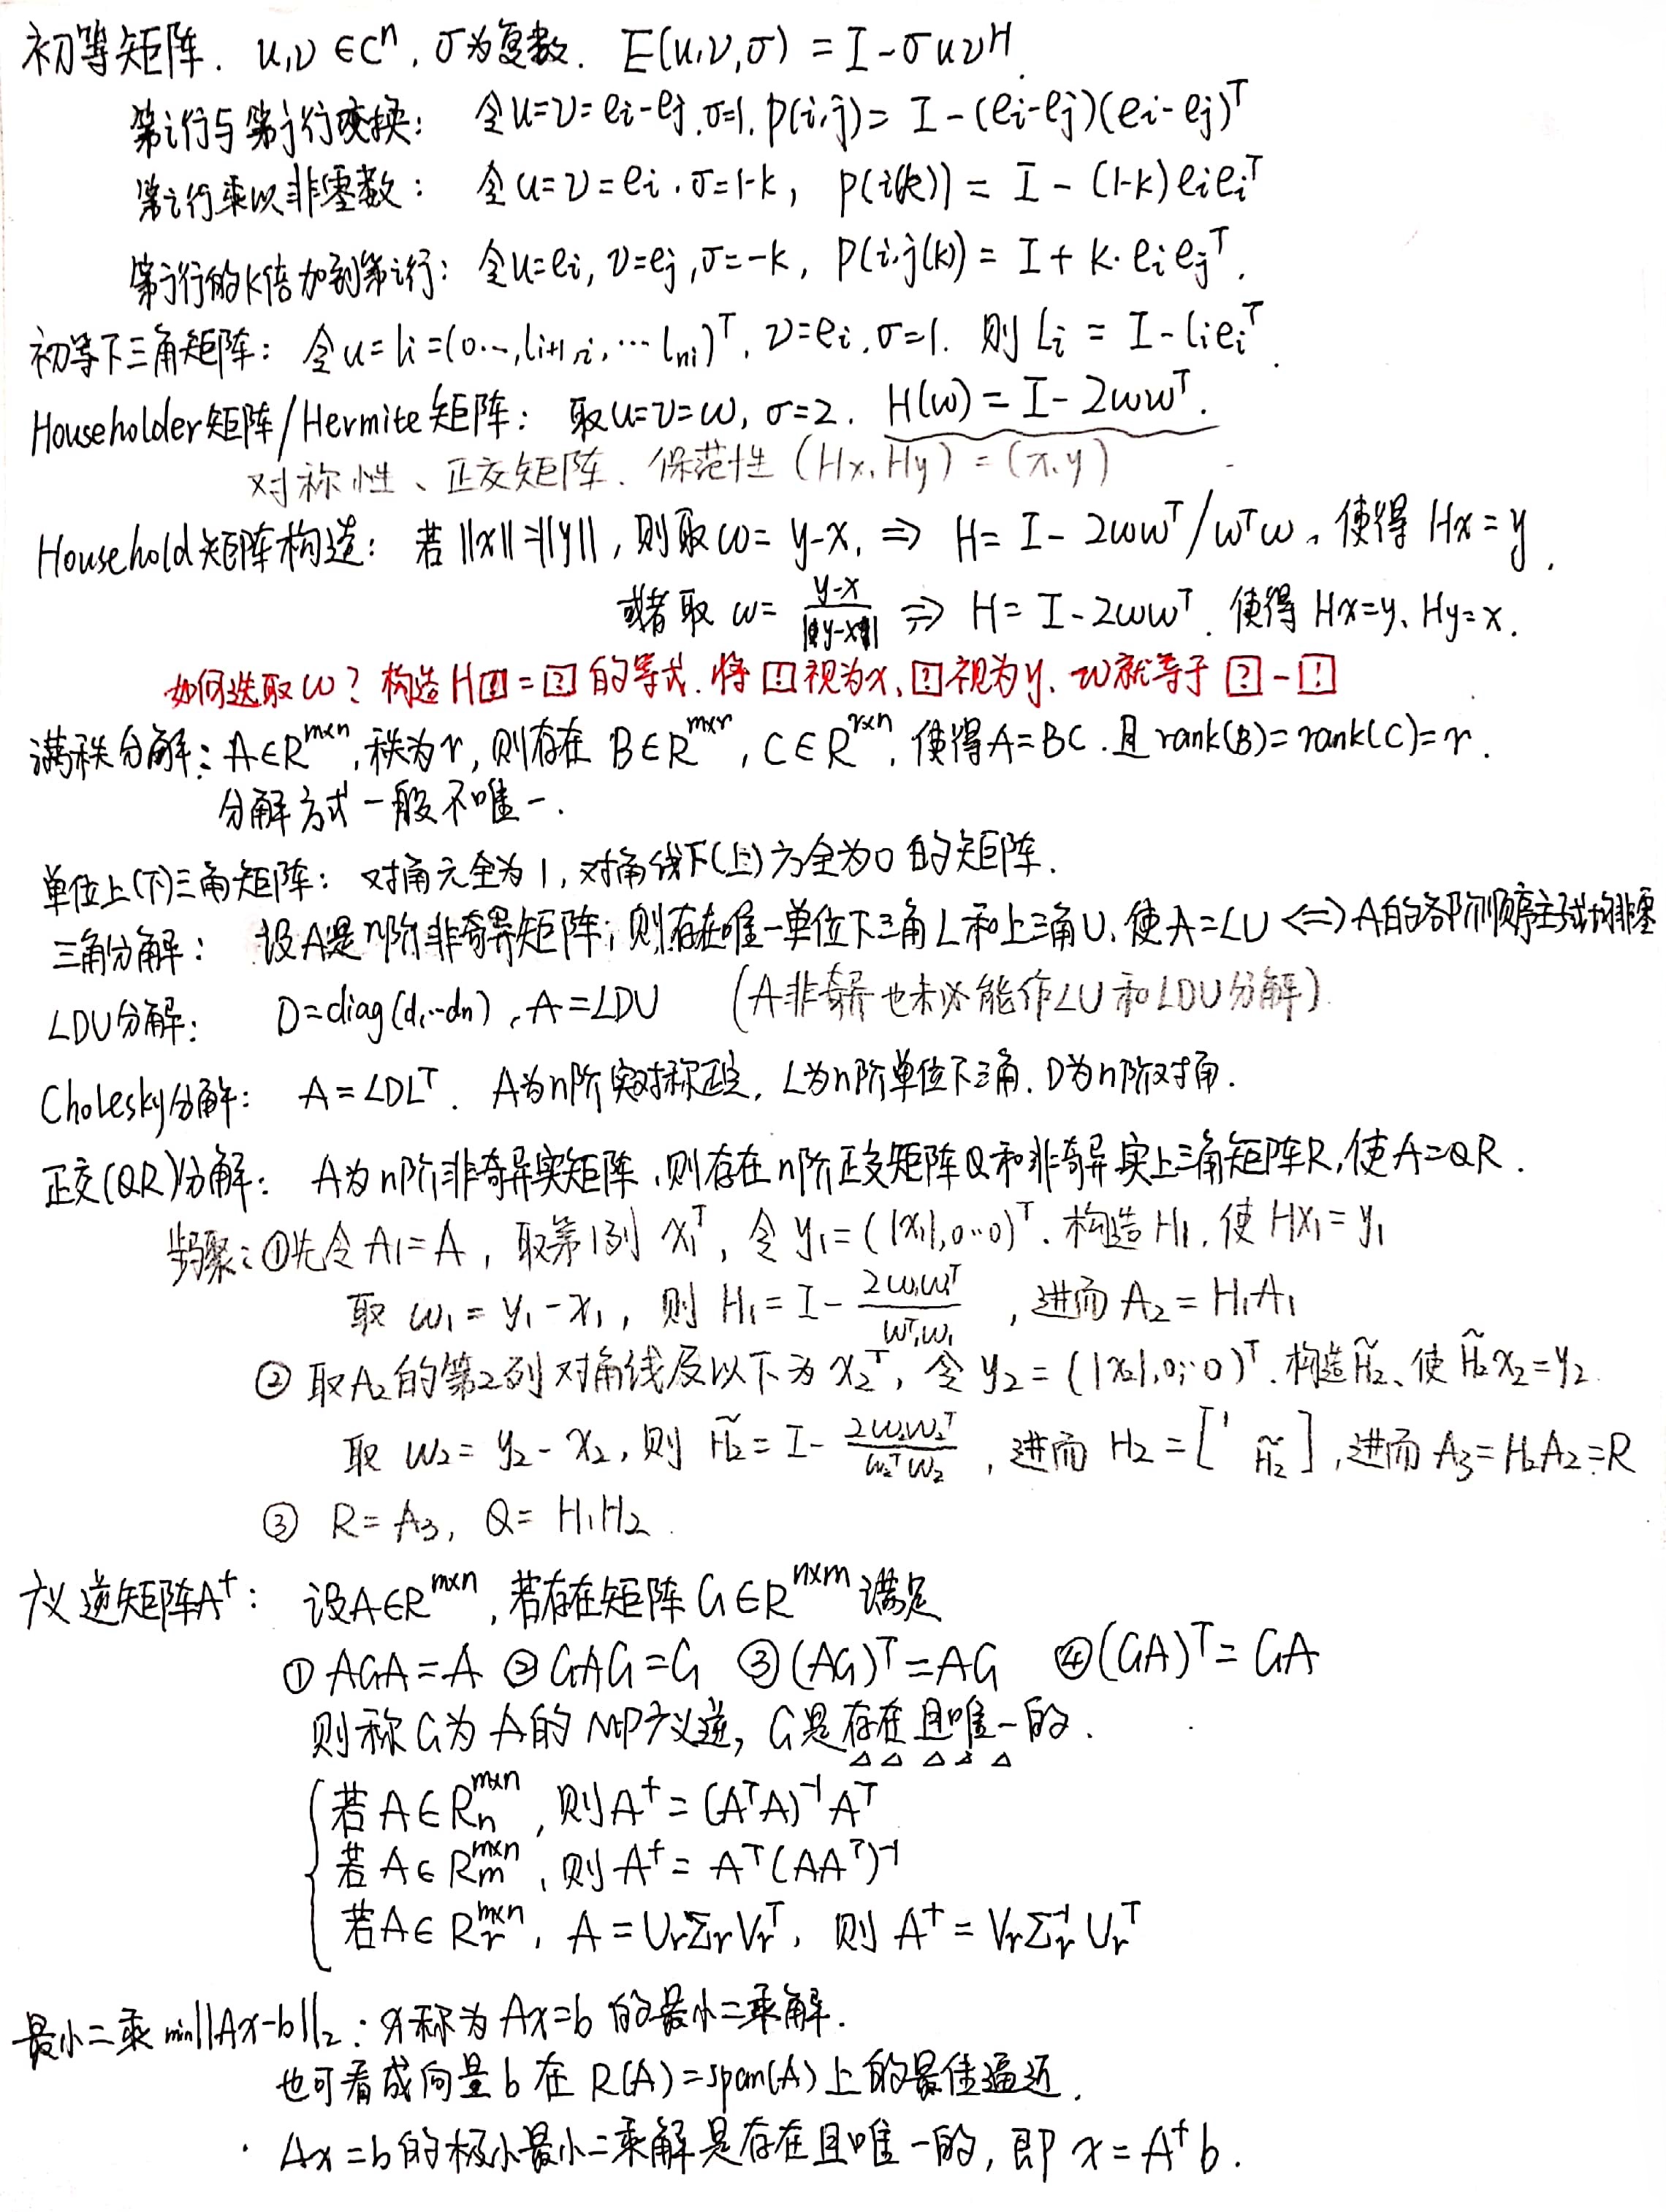 初等矩阵. u,v∈Cⁿ, σ为复数. E(u,v,σ) = I-σuvᴴ.
第i行与第j行交换: 令u=v=eᵢ-eⱼ.σ=1. P(i,j) = I-(eᵢ-eⱼ)(eᵢ-eⱼ)ᵀ
第i行乘以非零数: 令u=v=eᵢ.σ=1-k, P(i(k)) = I-(1-k)eᵢeᵢᵀ
第j行的k倍加到第i行: 令u=eᵢ, v=eⱼ,σ=-k, P(i.j(k) = I+k·eᵢeⱼᵀ.
初等下三角矩阵: 令u=lᵢ=(0…,lᵢ₊₁,ᵢ,…lₙᵢ)ᵀ, v=eᵢ.σ=1. 则Lᵢ = I-lᵢeᵢᵀ.
Householder矩阵/Hermite矩阵: 取u=v=ω, σ=2. H(ω) = I-2ωωᵀ.
对称性、正交矩阵. 保范性 (Hx,Hy) = (x.y)
Household矩阵构造: 若||x||=||y||, 则取ω= y-x, ⇒ H= I-2ωωᵀ/ωᵀω, 使得Hx=y.
或者取 ω= (y-x)/||y-x|| ⇒ H= I-2ωωᵀ. 使得Hx=y、Hy=x.
如何选取ω? 构造H[!]=[?]的等式. 将[!]视为x,[?]视为y, w就等于[?]-[!]
满秩分解: A∈Rᵐˣⁿ,秩为r, 则存在 B∈Rᵐˣʳ, C∈Rʳˣⁿ, 使得A=BC.且rank(B)=rank(C)=r.
分解方式一般不唯一.
单位上(下)三角矩阵: 对角元全为1, 对角线下(上)方全为0的矩阵.
三角分解: 设A是n阶非奇异矩阵; 则存在唯一单位下三角L和上三角U, 使A=LU <=> A的各阶顺序主子式均非零
LDU分解: D=diag(d₁…dn) , A=LDU (A非奇异也未必能作LU和LDU分解)
Cholesky分解: A=LDLᵀ. A为n阶实对称正定, L为n阶单位下三角. D为n阶对角.
正交(QR)分解: A为n阶非奇异实矩阵,则存在n阶正交矩阵Q和非奇异实上三角矩阵R,使A=QR.
步骤: ①先令A₁=A, 取第1列 x₁ᵀ, 令y₁=(|x₁|,0…0)ᵀ. 构造H₁, 使HX₁=y₁
取 ω₁= y₁-x₁, 则 H₁= I- 2ω₁ω₁ᵀ/ωᵀ₁ω₁ , 进而A₂=H₁A₁
② 取A₂的第2列对角线及以下为x₂ᵀ, 令y₂=(|x₂|,0…0)ᵀ. 构造H̃₂、使H̃₂x₂=y₂.
取 ω₂= y₂-x₂, 则 H̃₂= I- 2ω₂ω₂ᵀ/ω₂ᵀω₂ , 进而 H₂ = [1 H̃₂], 进而A₃=H₂A₂=R
③ R= A₃, Q= H₁H₂.
广义逆矩阵A⁺: 设A∈Rᵐˣⁿ, 若存在矩阵G∈Rⁿˣᵐ满足
① AGA=A ② GAG=G ③ (AG)ᵀ=AG ④(GA)ᵀ=GA
则称G为A的MP广义逆, G是存在且唯一的.
若A∈Rₙᵐˣⁿ, 则A⁺=(AᵀA)⁻¹Aᵀ
若A∈Rₘᵐˣⁿ, 则A⁺= Aᵀ(AAᵀ)⁻¹
若A∈Rᵣᵐˣⁿ, A=UᵣΣᵣVᵣᵀ, 则 A⁺=VᵣΣᵣ⁻¹Uᵣᵀ
最小二乘 min||Ax-b||₂: x称为Ax=b的最小二乘解.
也可看成向量b在R(A)=span(A)上的最佳逼近.
· Ax=b的极小最小二乘解是存在且唯一的, 即 x=A⁺b.